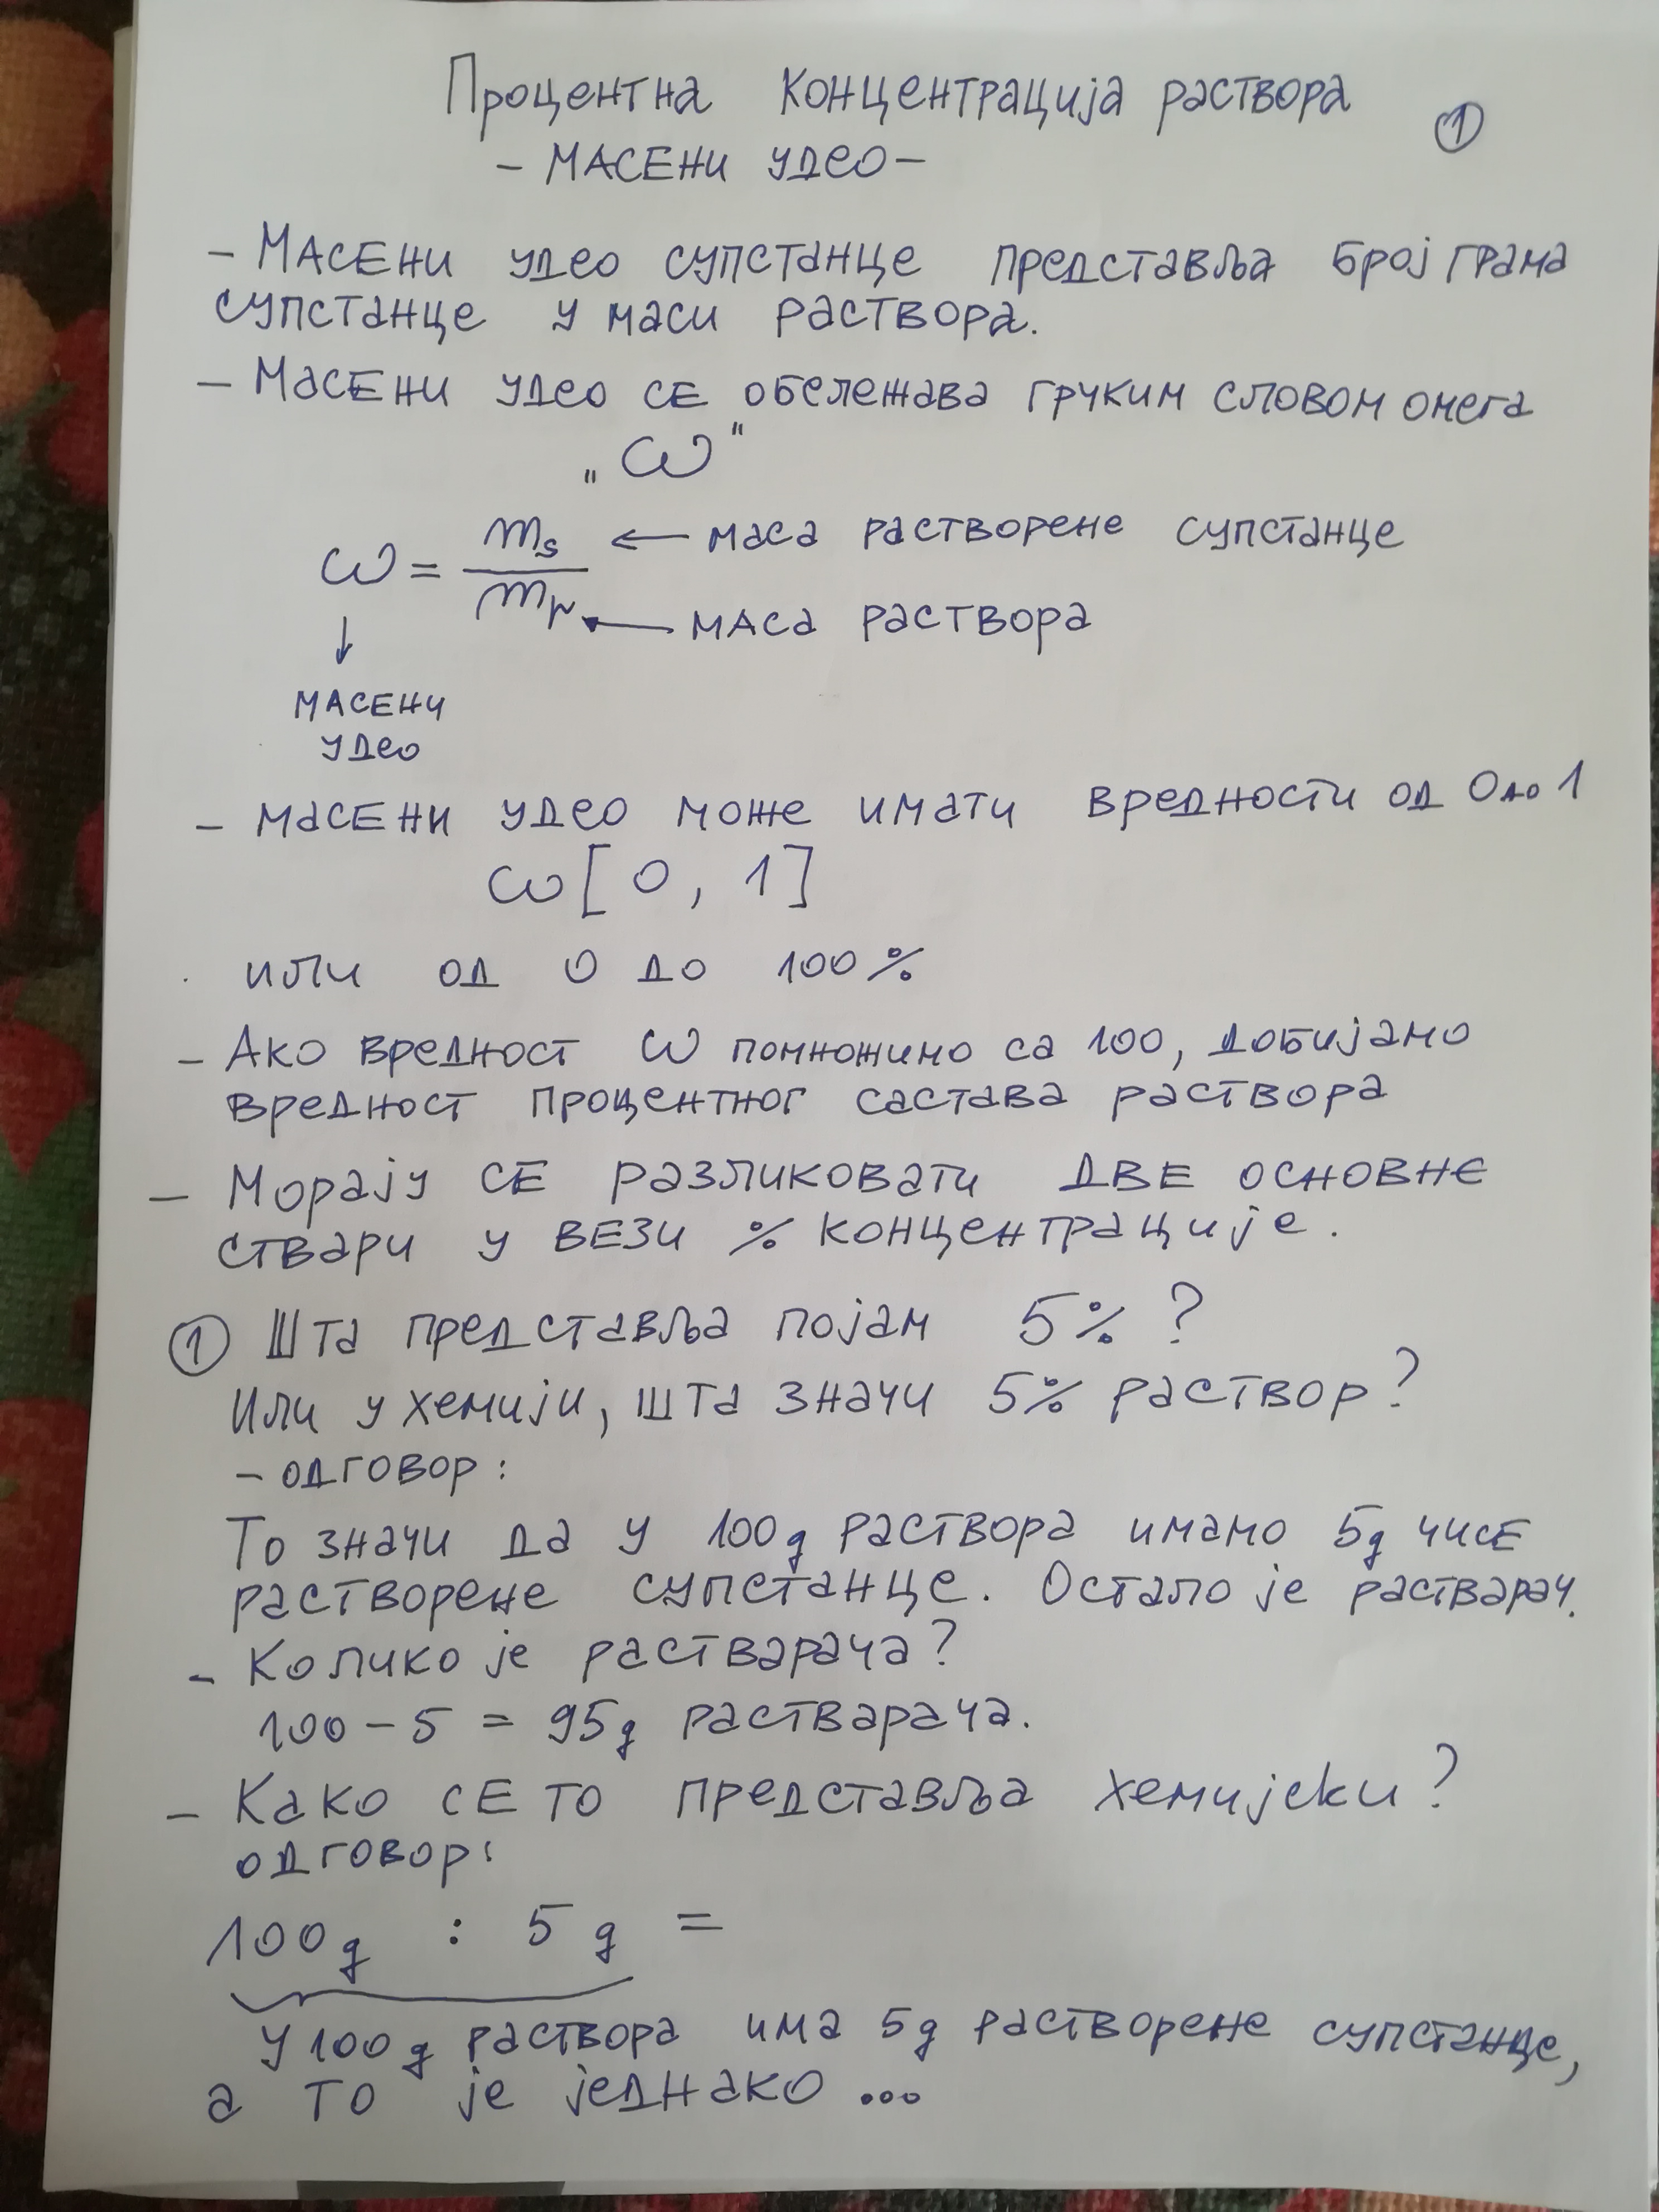 Процентна концентрација раствора
①
- МАСЕНИ УДЕО -
- Масени удео супстанце представља број грама
супстанце у маси раствора.
- Масени удео се обележава грчким словом омега
„ω"
ω = ms / mr ← маса растворене супстанце
← маса раствора
↓
МАСЕНИ
УДЕО
- масени удео може имати вредности од 0 до 1
ω[0, 1]
или од 0 до 100%
- Ако вредност ω помножимо са 100, добијамо
вредност процентног састава раствора
- Морају се разликовати две основне
ствари у вези % концентрације.
① Шта представља појам 5%?
Или у хемији, шта значи 5% раствор?
- одговор:
То значи да у 100g раствора имамо 5g чисе
растворене супстанце. Остало је растварач.
- Колико је растварача?
100 - 5 = 95g растварача.
- Како се то представља хемијски?
одговор:
100g : 5g =
У 100g раствора има 5g растворене супстанце,
а то је једнако ...